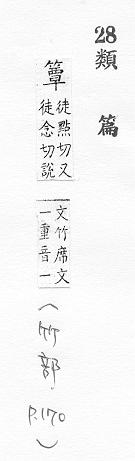 28類篇
簟徒點切又
徒念切說
文竹席文
一重音一
(竹部. P.170)